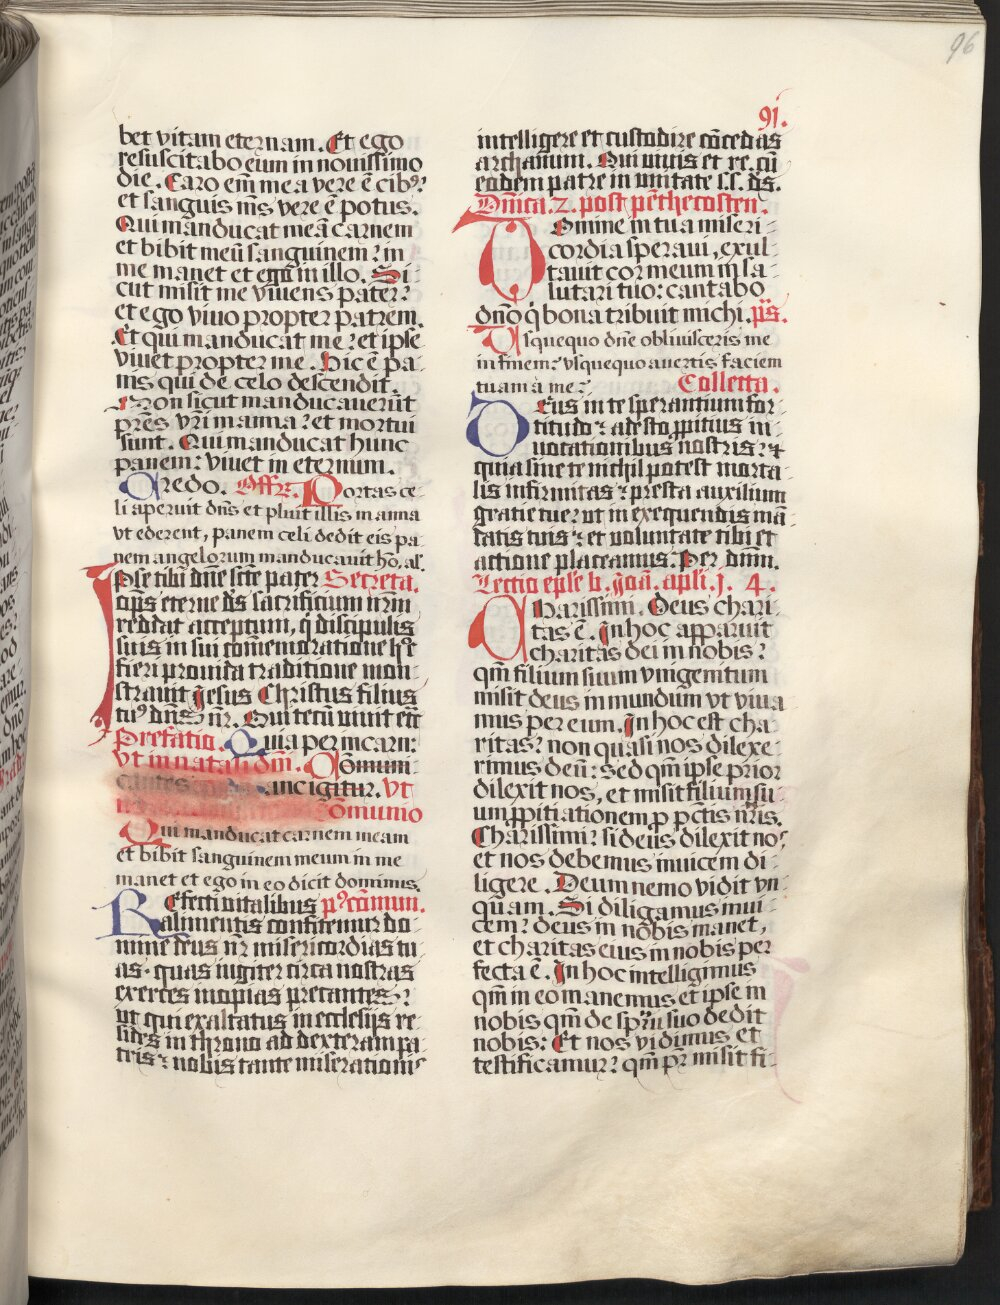 96
91.
bet vitam eternam. Et ego
resuscitabo eum in nouissimo
die. Caro em̄ mea vere ē cibꝰ:
et sanguis mS vere ē potus.
Qui manducat meā carnem
et bibit meū sanguinem: in
me manet et ego in illo. Si-
cut misit me viuens pater:
et ego viuo propter patrem.
Et qui manducat me: et ipse
viuet propter me. Hic ē pa-
nis qui de celo descendit.
Non sicut manducauerūt
prēs vr̄i manna: et mortui
sunt. Qui manducat hunc
panem: viuet in eternum.
Credo. Offe. Portas ce-
li aperuit dn̄s et pluit illis manna
vt ederent, panem celi dedit eis pa-
nem angelorum manducauit ho. al.
Ipse tibi dn̄e sc̄te pater Secreta.
op̄s eterne ds sacrificium nr̄m
reddat acceptum, q̄ discipulis
suis in sui com̄emoratione hoc
fieri promida traditione mon-
strauit Jesus Christus filius
tuꝰ dn̄s nr̄. Qui tecū viuit etc̄
Prefatio. Quia per incarn:
vt in natali dn̄i. Com̄uni-
cantes Hanc igitur. vt
Com̄unio
Qui manducat carnem meam
et bibit sanguinem meum in me
manet et ego in eo dicit dominus.
Refecti vitalibus pꝰcom̄un.
alimentis confitemur do-
mine deus nr̄ misericordias tu-
as. quas iugiter circa nostras
exerces inopias precantes:
ut qui exaltatus in ecclesijs re-
sides in throno ad dexteram pa-
tris: nobis tante miserationiˢ
intelligere et custodire cōcedas
archanum. Qui viuis et re. cū
eodem patre in vnitate s.s. ds.
Dn̄ica. 2. post pēthecosten.
Domine in tua miseri-
cordia speraui, exul-
tauit cor meum in sa-
lutari tuo: cantabo
dn̄o q̄ bona tribuit michi. ps̄.
Vsquequo dn̄e obliuisceris me
in finem: vsquequo auertis faciem
tuam à me: Colletta.
Deus in te sperantium for-
titudo: adesto ꝓpitius in-
uocationibus nostris: et
quia sine te nichil potest morta-
lis infirmitas: presta auxilium
gratie tue: ut in exequendis mā-
datis tuis: et voluntate tibi et
actione placeamus. Per dn̄m.
Lectio epl̄e b. Joā. apl̄i. j. 4.
Charissimi. Deus chari-
tas ē. In hoc apparuit
charitas dei in nobis:
qm̄ filium suum vnigenitum
misit deus in mundum vt viua-
mus per eum. In hoc est cha-
ritas: non quasi nos dilexe-
rimus deū: sed qm̄ ipse prior
dilexit nos, et misit filium su-
um ꝓpitiationem p pc̄tis nr̄is.
Charissimi: si deus dilexit noˢ
et nos debemus inuicem di-
ligere. Deum nemo vidit vn-
quam. Si diligamus inui-
cem: deus in nobis manet,
et charitas eius in nobis per-
fecta ē. In hoc intelligimus
qm̄ in eo manemus et ipse in
nobis qm̄ de spū suo dedit
nobis: Et nos vidimus et
testificamur: qm̄ pr̄ misit fi-